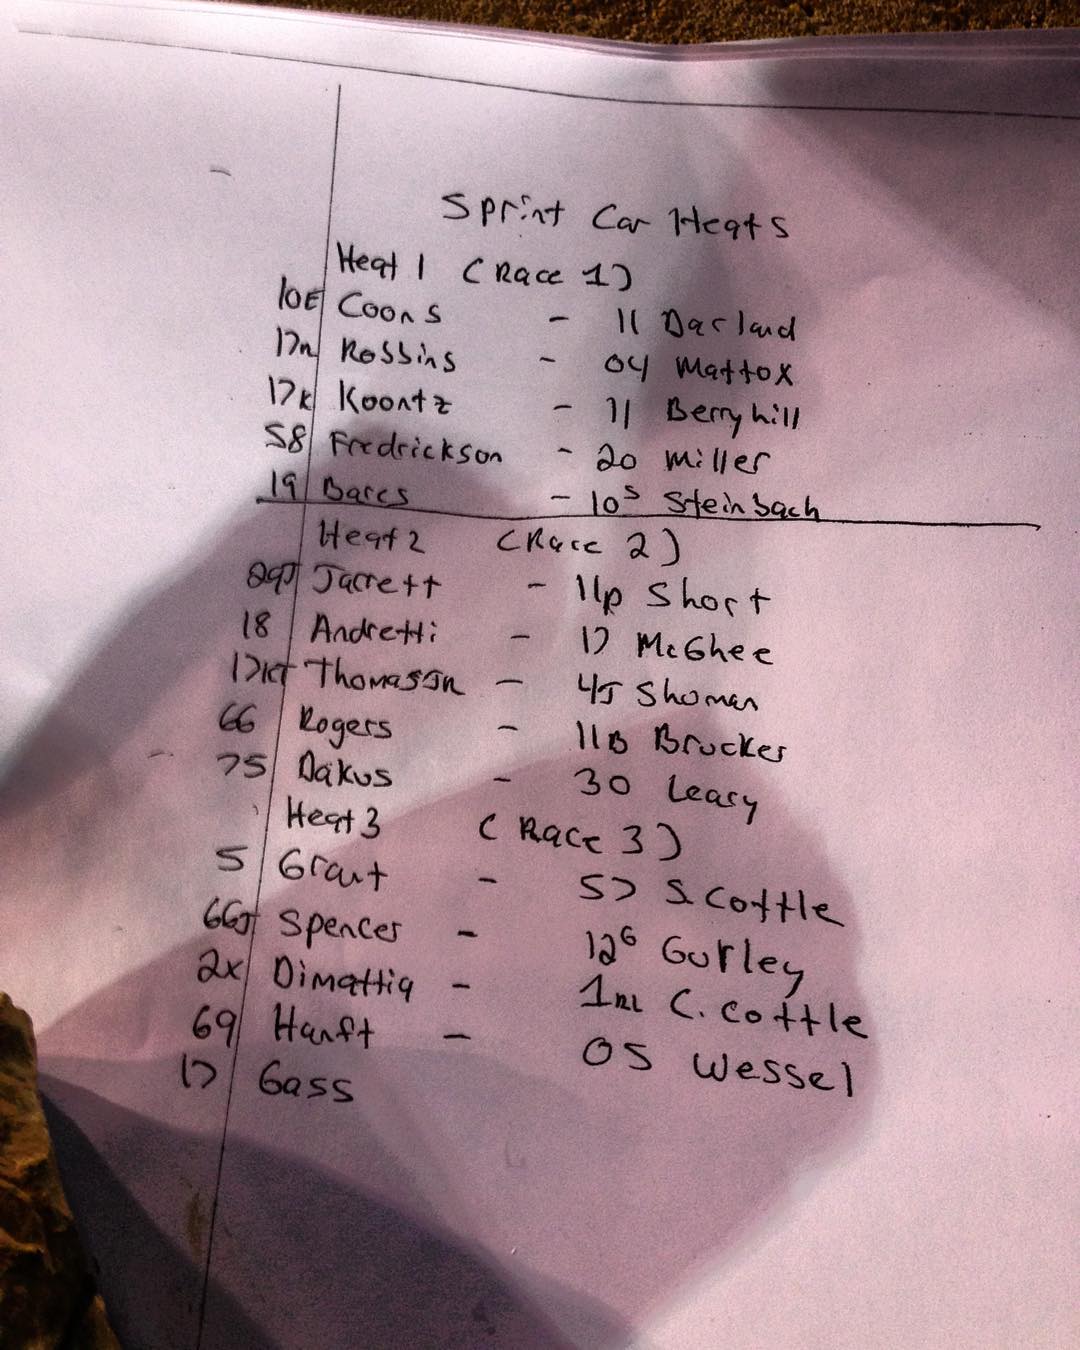 Sprint Car Heats
Heat 1 (Race 1)
10E Coons - 11 Darland
17n Robbins - 04 Mattox
17k Koontz - 11 Berryhill
58 Fredrickson - 20 Miller
19 Bares - 10S Steinbach
Heat 2 (Race 2)
Jarrett - 11p Short
18 Andretti - 17 McGhee
17KT Thomasson - 4J Shuman
66 Rogers - 11B Brucker
75 Dakus - 30 Leary
Heat 3 (Race 3)
5 Grant - 57 S. Cottle
66J Spencer - 12G Gurley
2x Dimattia - C. Cottle
69 Hanft - 05 Wessel
17 Gass